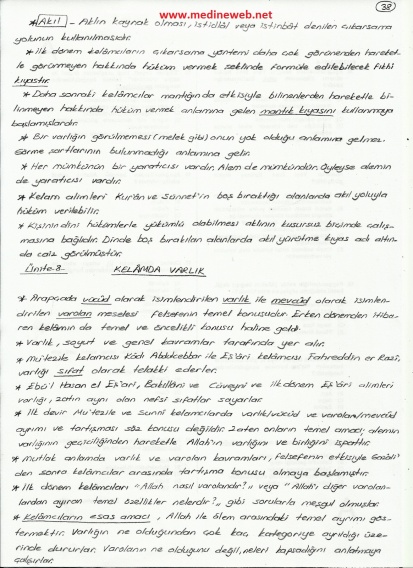 www.medineweb.net
38
* Akıl - Aklın kaynak olması, istidlâl veya istinbât denilen çıkarsama
yolunun kullanılmasıdır.
* İlk dönem kelâmcıların çıkarsama yöntemi daha çok görünenden hareket-
le görünmeyen hakkında hüküm vermek şeklinde formüle edilebilecek fıkhî
kıyastır.
* Daha sonraki kelâmcılar mantığında etkisiyle bilinenlerden hareketle bi-
linmeyen hakkında hüküm vermek anlamına gelen mantık kıyasını kullanmaya
başlamışlardır.
* Bir varlığın görülmemesi (melek gibi) onun yok olduğu anlamına gelmez.
Görme şartlarının bulunmadığı anlamına gelir.
* Her mümkünün bir yaratıcısı vardır. Alem de mümkündür. Öyleyse alemin
de yaratıcısı vardır.
* Kelam alimleri Kur'ân ve Sünnet'in boş bıraktığı alanlarda akıl yoluyla
hüküm verilebilir.
* Kişinin dinî hükümlerle yükümlü olabilmesi aklının kusursuz biçimde çalış-
masına bağlıdır. Dinde boş bırakılan alanlarda akıl yürütme kıyas adı altın-
da caiz görülmüştür.
Ünite-8- KELÂMDA VARLIK
* Arapçada vücûd olarak isimlendirilen varlık ile mevcûd olarak isimlen-
dirilen varolan meselesi Felsefenin temel konusudur. Erken dönemden itiba-
ren kelâmın da temel ve öncelikli konusu haline geldi.
* Varlık, soyut ve genel kavramlar tarafında yer alır.
* Mu'tezile kelamcısı Kâdı Abdülcebbar ile Eş'arî kelâmcısı Fahreddin er Razî,
varlığı sıfat olarak telakki ederler.
* Ebü'l Hasan el Eş'arî, Bakıllânî ve Cüveynî ve ilk dönem Eş'ârî alimleri
varlığı, zatın aynı olan nefsî sıfatlar sayarlar.
* İlk devir Mu'tezile ve Sünnî kelamcılarda varlık/vücûd ve varolan/mevcûd
ayrımı ve tartışması söz konusu değildir. Zaten onların temel amacı; alemin
varlığının geçiciliğinden hareketle Allah'ın varlığını ve birliğini ispattır.
* Mutlak anlamda varlık ve varolan kavramları, felsefenin etkisiyle Gazâlî'
den sonra kelâmcılar arasında tartışma konusu olmaya başlamıştır.
* İlk dönem kelâmcıları "Allah nasıl varolandır?" veya "Allah'ı diğer varolan-
lardan ayıran temel özellikler nelerdir?" gibi sorularla meşgul olmuşlar.
* Kelâmcıların esas amacı, Allah ile âlem arasındaki temel ayrımı gös-
termektir. Varlığın ne olduğundan çok kaç kategoriye ayrıldığı üze-
rinde dururlar. Varolanın ne olduğunu değil, neleri kapsadığını anlatmaya
çalışırlar.